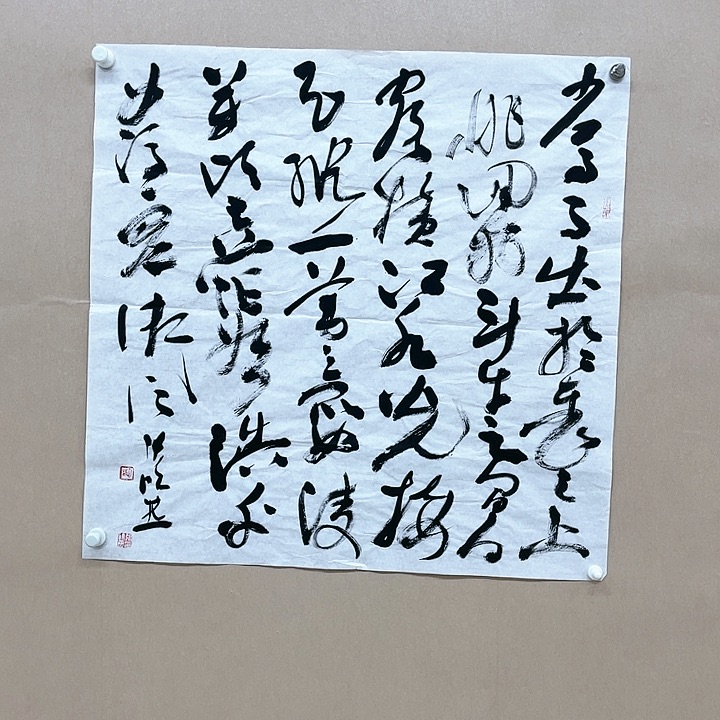 少焉月出於東山之上
徘徊於斗牛之間
白露橫江水光接
天縱一葦之所如凌
萬頃之茫然浩浩乎
如馮虛御風